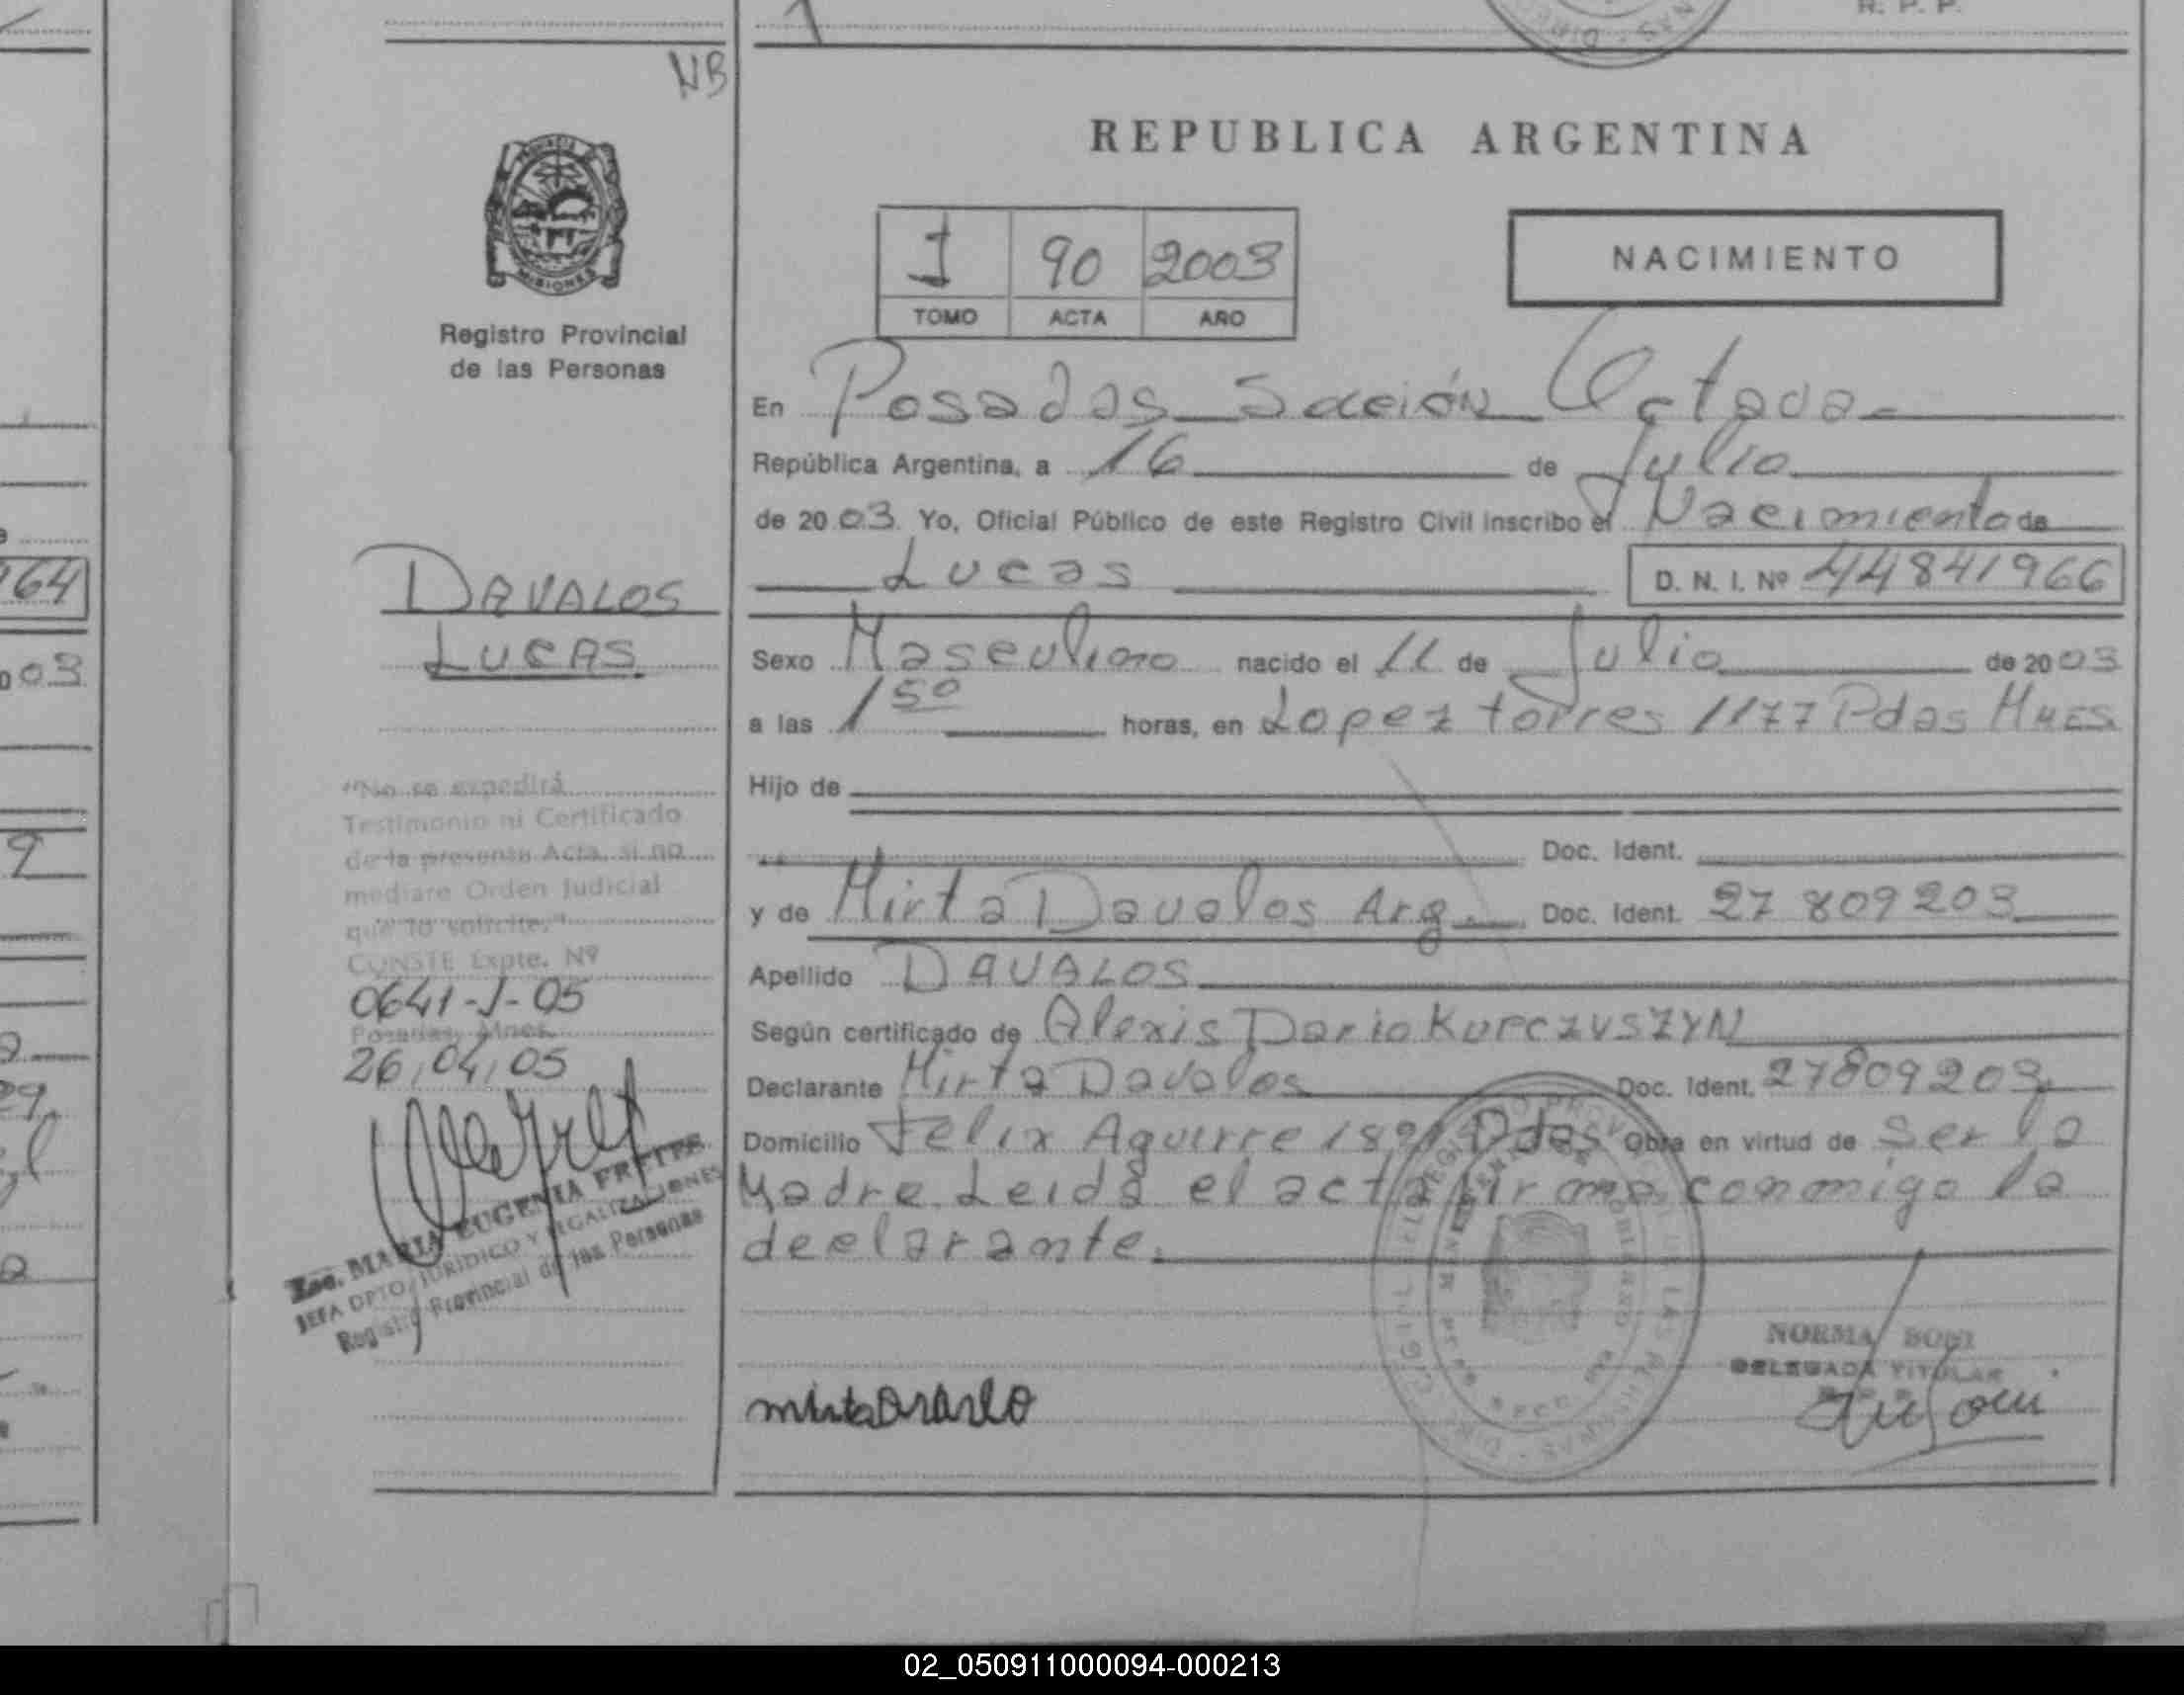 R. P. P.
NB
REPUBLICA ARGENTINA
I 90 2003
TOMO ACTA AÑO
NACIMIENTO
MISIONES
Registro Provincial
de las Personas
En Posadas Sección Octava
República Argentina, a 16 de Julio
de 2003. Yo, Oficial Público de este Registro Civil inscribo el Nacimiento de
Lucas D. N. I. Nº 44841966
DAVALOS
LUCAS
Sexo Masculino nacido el 11 de Julio de 2003
a las 1 50 horas, en Lopez torres 1177 Pdas Mnes
Hijo de
Doc. Ident.
y de Mirta Davalos Arg. Doc. Ident. 27 809 203
Apellido DAVALOS
Según certificado de Alexis Dario KURCZYSZYN
Declarante Mirta Davalos Doc. Ident. 27809203
Domicilio Felix Aguirre Pdas Obra en virtud de Ser la
Madre. Leida el acta firma conmigo la
declarante.
"No se expedirá
Testimonio ni Certificado
de la presente Acta, si no
mediare Orden Judicial
que lo solicite."
CONSTE Expte. Nº
0641-J-05
Posadas, Mnes.
26,04,05
MARIA EUGENIA FRETES
JEFA DPTO. JURIDICO Y LEGALIZACIONES
Registro Provincial de las Personas
NORMA
DELEGADA TITULAR
164
03
02_050911000094-000213